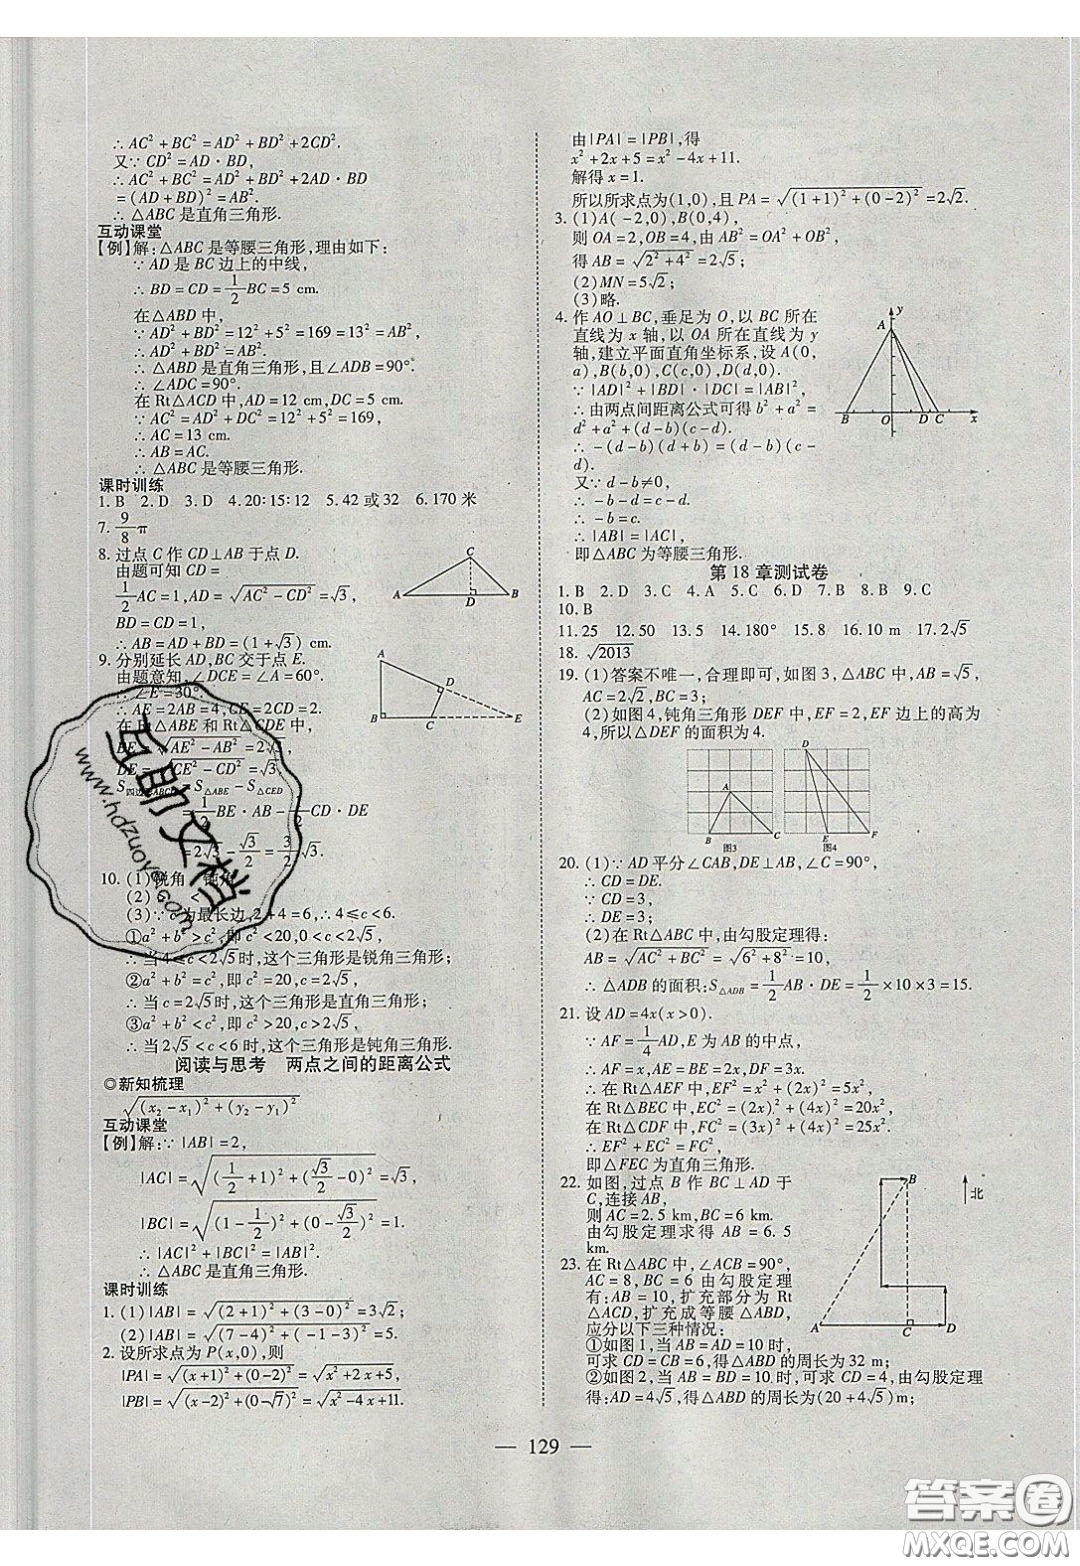 ∴ AC²+BC²=AD²+BD²+2CD².
又∵ CD²=AD·BD,
∴ AC²+BC²=AD²+BD²+2AD·BD
=(AD+BD)²=AB².
∴ △ABC是直角三角形.
互动课堂
【例】解:△ABC是等腰三角形,理由如下:
∵ AD是BC边上的中线,
∴ BD=CD=1/2 BC=5 cm.
在△ABD中,
∵ AD²+BD²=12²+5²=169=13²=AB²,
∴ AD²+BD²=AB².
∴ △ABD是直角三角形,且∠ADB=90°.
∴ ∠ADC=90°.
在Rt△ACD中,AD=12,DC=5 cm.
∵ AC²=AD²+DC²=12²+5²=169,
∴ AC=13 cm.
∴ AB=AC.
∴ △ABC是等腰三角形.
课时训练
1.B 2.D 3.D 4.20:15:12 5.42或32 6.170米
7. 9/8 π
8. 过点C作CD⊥AB于点D.
由题可知∵
1/2 AC=1,AD=√(AC²-CD²)=√3,
BD=CD=1,
∴ AB=AD+BD=(1+√3) cm.
A D B C
9. 分别延长AD,BC交于点E.
由题意知,∠DCE=∠A=60°.
∴ ∠E=30°.
∴ AE=2AB=4,CE=2CD=2.
在Rt△ABE和Rt△CDE中,
BE=√(AE²-AB²)=2√3,
DE=√(CE²-CD²)=√3.
S四边形ABCD=S△ABE-S△CED
=1/2 BE·AB-1/2 CD·DE
=2√3-√3/2=3/2 √3.
A D B C E
10. (1)锐角 钝角
(2)> <
(3)∵ c为最长边,2+4=6,∴ 4≤c<6.
①a²+b²>c²,即c²<20,0<c<2√5,
∴ 当4≤c<2√5时,这个三角形是锐角三角形.
②a²+b²=c²,即c²=20,c=2√5,
∴ 当c=2√5时,这个三角形是直角三角形;
③a²+b²<c²,即c²>20,c>2√5,
∴ 当2√5<c<6时,这个三角形是钝角三角形.
阅读与思考 两点之间的距离公式
◎新知梳理
√((x₂-x₁)²+(y₂-y₁)²)
互动课堂
【例】解:∵ |AB|=2,
|AC|=√((1/2+1)²+(√3/2-0)²)=√3,
|BC|=√((1-1/2)²+(0-√3/2)²)=1.
∴ |AC|²+|BC|²=|AB|².
∴ △ABC是直角三角形.
课时训练
1. (1)|AB|=√((2+1)²+(3-0)²)=3√2;
(2)|AB|=√((7-4)²+(-1-3)²)=5.
2. 设所求点为P(x,0),则
|PA|=√((x+1)²+(0-2)²)=√(x²+2x+5),
|PB|=√((x-2)²+(0-√7)²)=√(x²-4x+11).
由|PA|=|PB|,得
x²+2x+5=x²-4x+11.
解得x=1.
所以所求点为(1,0),且PA=√((1+1)²+(0-2)²)=2√2.
3. (1)A(-2,0),B(0,4),
则OA=2,OB=4,由AB²=OA²+OB²,
得AB=√(2²+4²)=2√5;
(2)MN=5√2;
(3)略.
4. 作AO⊥BC,垂足为O,以BC所在
直线为x轴,以OA所在直线为y
轴,建立平面直角坐标系,设A(0,
a),B(b,0),C(c,0),D(d,0).
∵ |AD|²+|BD|·|DC|=|AB|²,
∴ 由两点间距离公式可得b²+a²=
d²+a²+(d-b)(c-d).
∴ -(d-b)(d+b)=(d-b)(c-
d).
又∵ d-b≠0,
∴ -b-d=c-d.
∴ -b=c.
∴ |AB|=|AC|,
即△ABC为等腰三角形.
y A B O D C x
第18章测试卷
1.B 2.D 3.C 4.A 5.C 6.D 7.B 8.B 9.C
10.B
11.25 12.50 13.5 14.180° 15.8 16.10 m 17.2√5
18. √2013
19. (1)答案不唯一,合理即可,如图3,△ABC中,AB=√5,
AC=2√2,BC=3;
(2)如图4,钝角三角形DEF中,EF=2,EF边上的高为
4,所以△DEF的面积为4.
A B C D E F
图3 图4
20. (1)∵ AD平分∠CAB,DE⊥AB,∠C=90°,
∴ CD=DE.
∵ CD=3,
∴ DE=3;
(2)在Rt△ABC中,由勾股定理得:
AB=√(AC²+BC²)=√(6²+8²)=10,
∴ △ADB的面积:S△ADB=1/2 AB·DE=1/2×10×3=15.
21. 设AD=4x(x>0).
∵ AF=1/4 AD,E为AB的中点,
∴ AF=x,AE=EB=2x,DF=3x.
∴ 在Rt△AEF中,EF²=x²+(2x)²=5x²,
在Rt△BEC中,EC²=(2x)²+(4x)²=20x²,
在Rt△CDF中,FC²=(3x)²+(4x)²=25x².
∴ EF²+EC²=FC²,
即△FEC为直角三角形.
22. 如图,过点B作BC⊥AD于
C,连接AB,
则AC=2.5 km,BC=6 km.
由勾股定理求得AB=6.5
km.
B 北 A C D
23. 在Rt△ABC中,∠ACB=90°,
AC=8,BC=6由勾股定理
有:AB=10,扩充部分为Rt
△ACD,扩充成等腰△ABD,
应分以下三种情况:
①如图1,当AB=AD=10时,
可求CD=CB=6,得△ABD的周长为32 m;
②如图2,当AB=BD=10时,可求CD=4,由勾股定理
得:AD=4√5,得△ABD的周长为(20+4√5)m;
— 129 —
互助文档
www.hdzuoye.com
答案圈
MXQE.COM